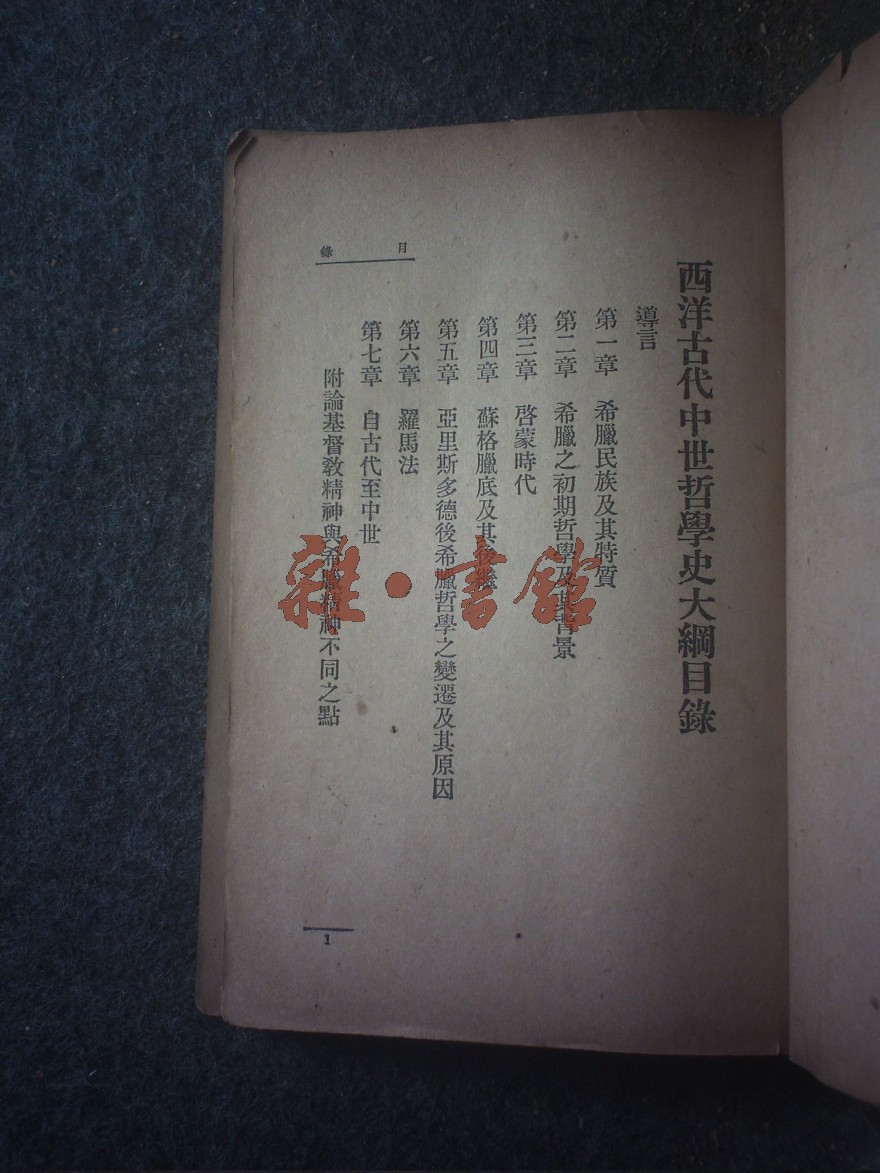 西洋古代中世哲學史大綱目錄
導言
第一章 希臘民族及其特質
第二章 希臘之初期哲學及其背景
第三章 啓蒙時代
第四章 蘇格臘底及其後繼
第五章 亞里斯多德後希臘哲學之變遷及其原因
第六章 羅馬法
第七章 自古代至中世
附論基督教精神與希臘精神不同之點
目錄
1
雜·書館